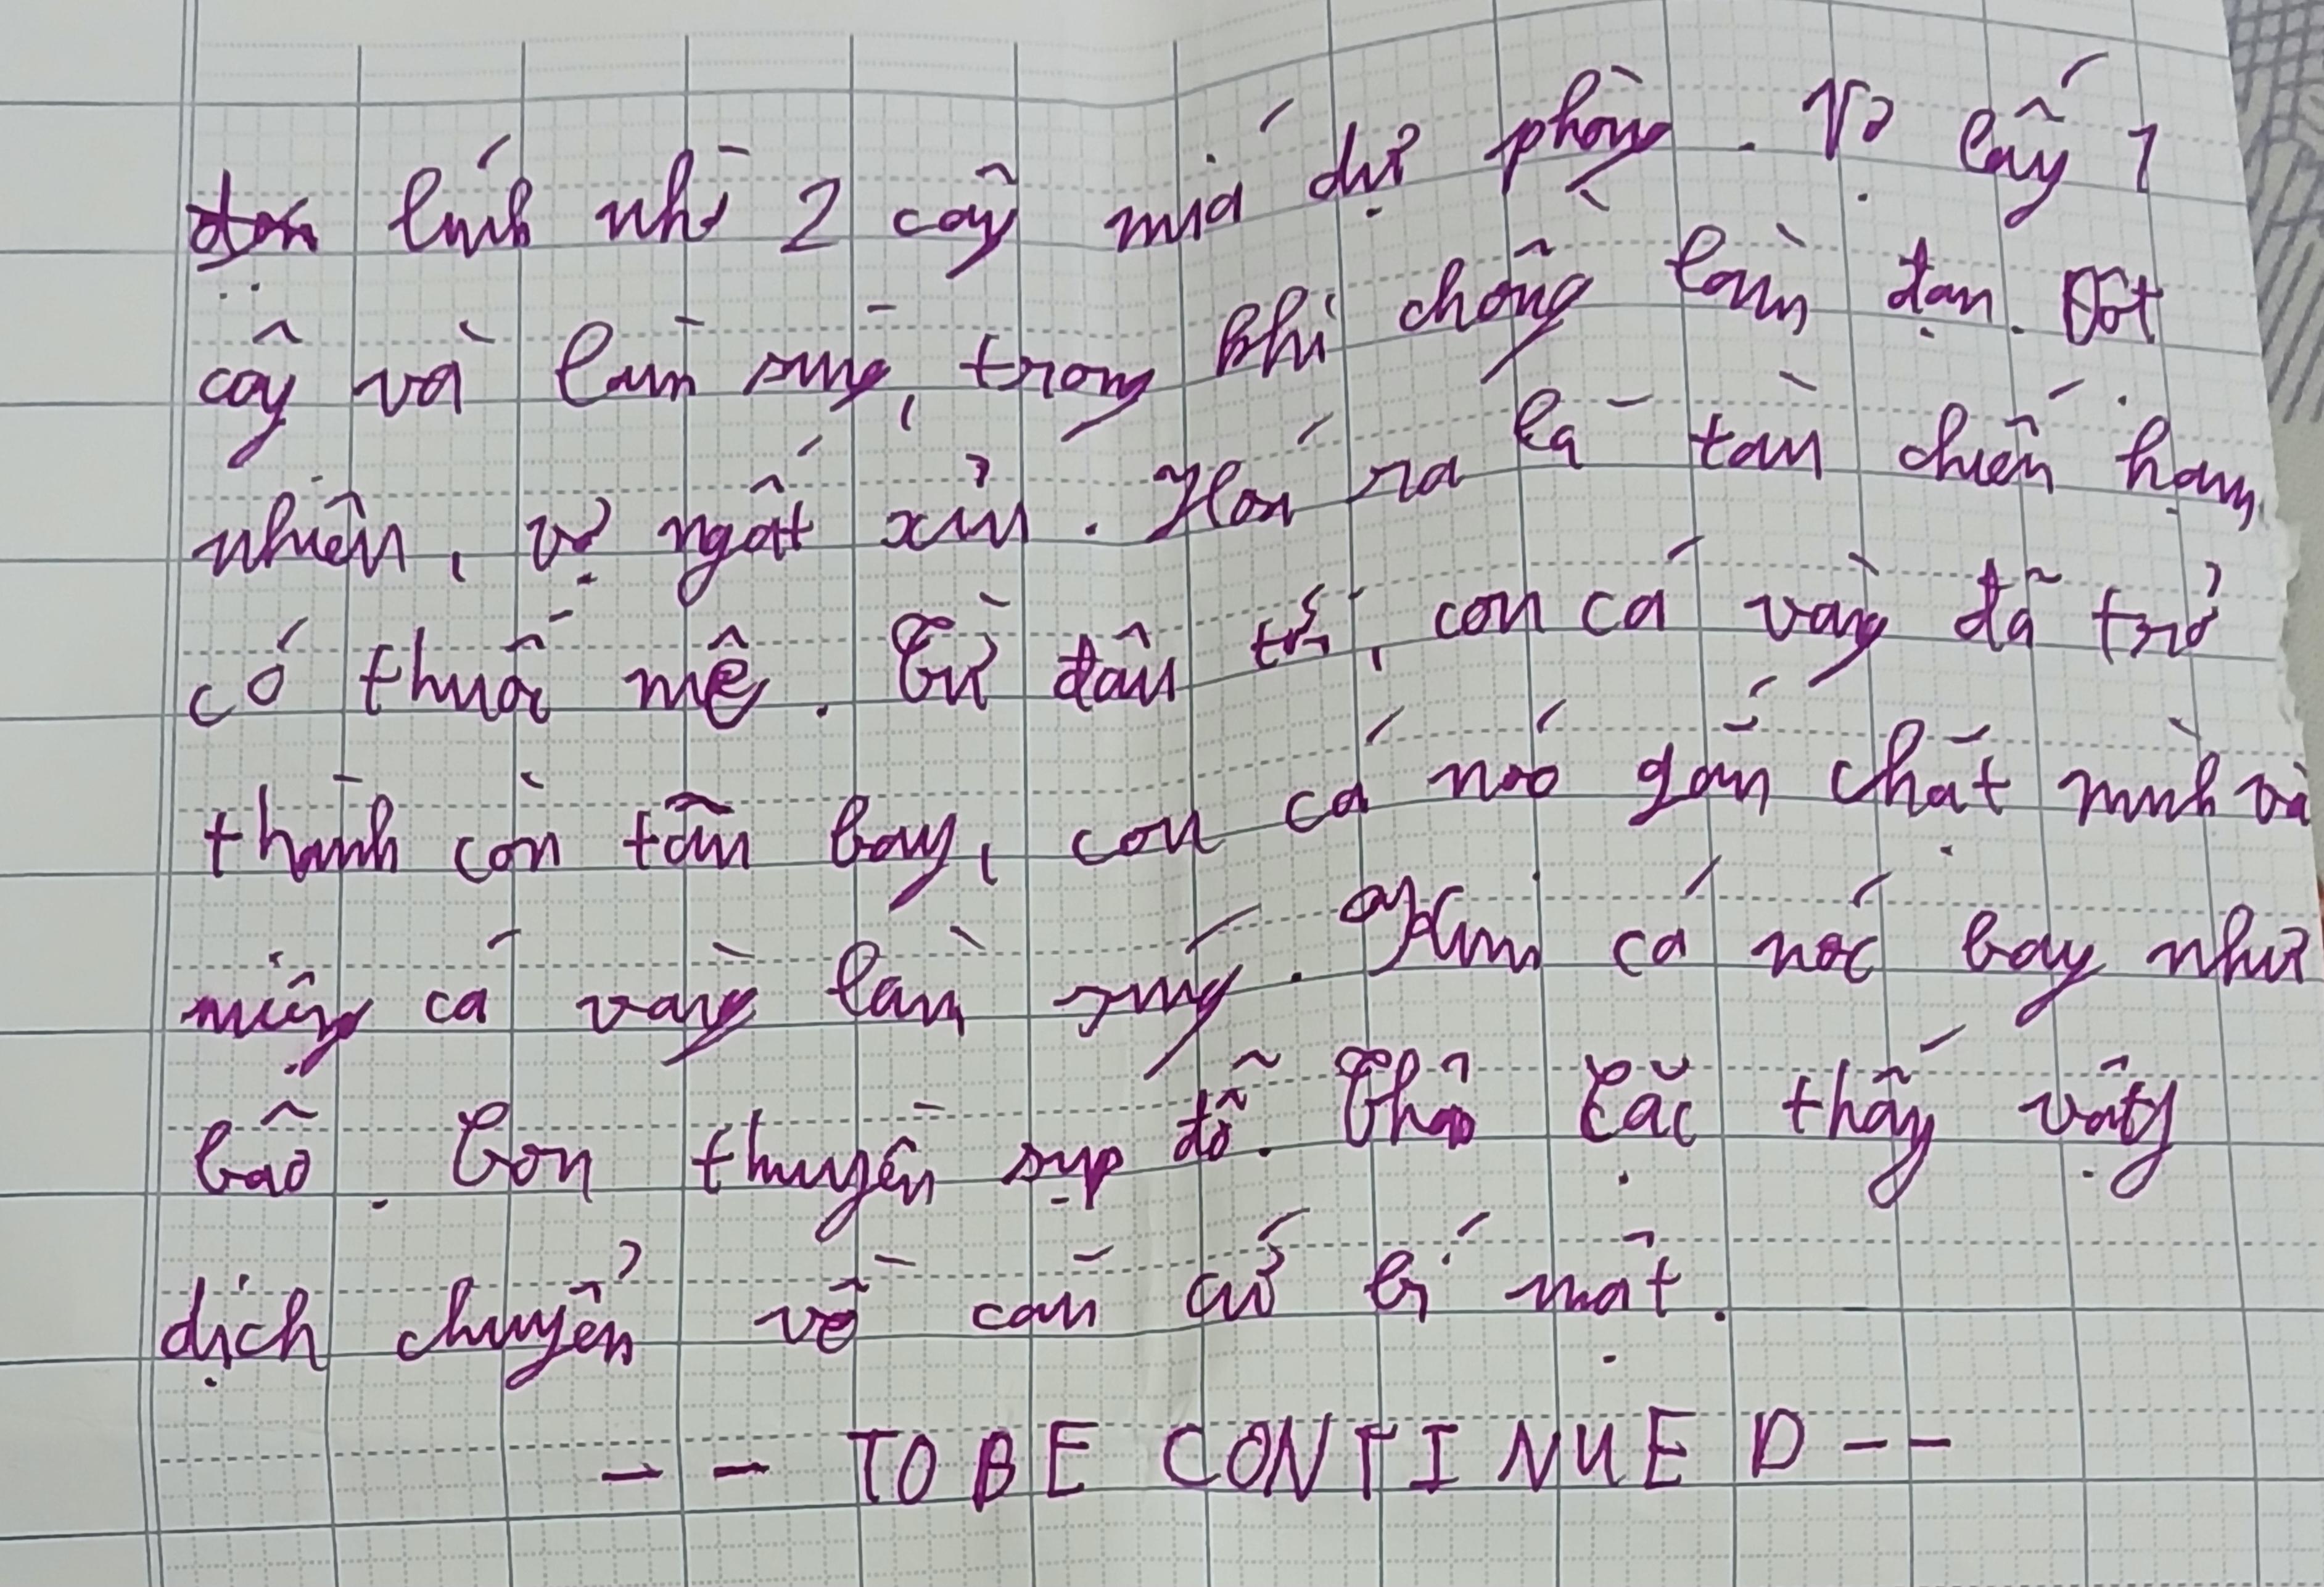 lính nhì 2 cây mía dự phòng. Vợ lấy 1
cây và làm súng, trong khi chồng làm đạn. Đột
nhiên, vợ ngất xỉu. Hoá ra là tàn chiến hạm
có thuốc mê. Từ đâu tới, con cá vàng đã trở
thành còn tân bay, con cá noó gắn chặt mình và
miệng cá vàng làm súng. Xăm cá nóc bay như
bão. Con thuyền sụp đổ. Thỏ Cặc thấy vậy
dịch chuyển về căn cứ bí mật.
-- TO BE CONTINUED --